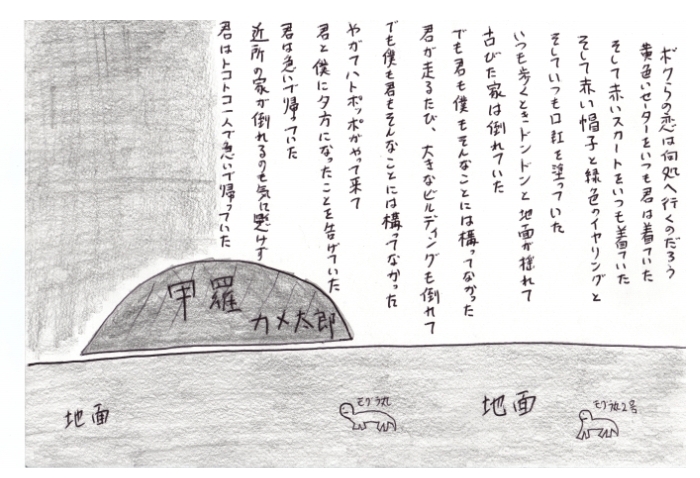 ボクらの恋は何処へ行くのだろう
黄色いセーターをいつも君は着ていた
そして赤いスカートをいつも着ていた
そして赤い帽子と緑色のイヤリングと
そしていつも口紅を塗っていた
いつも歩くときドンドンと地面が揺れて
古びた家は倒れていた
でも君も僕もそんなことには構ってなかった
君が走るたび、大きなビルディングも倒れて
でも僕も君もそんなことには構ってなかった
やがてハトポッポがやって来て
君と僕に夕方になったことを告げていた
君は急いで帰っていた
近所の家が倒れるのも気に懸けず
君はトコトコ一人で急いで帰っていた
甲羅
カメ太郎
地面
モグラ丸
地面
モグラ丸2号